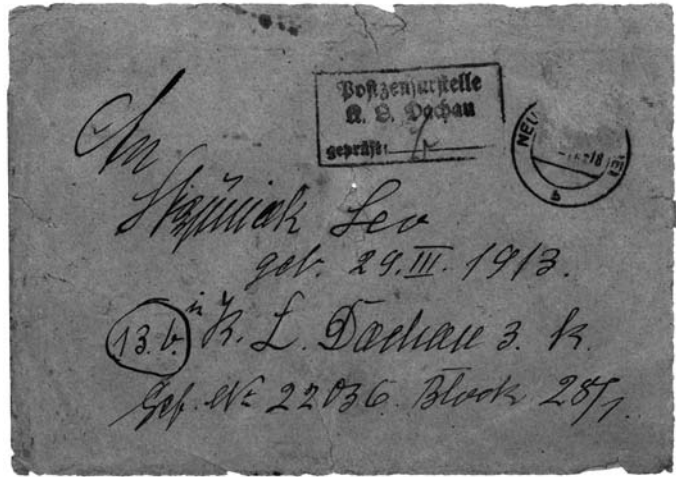 Postzensurstelle
K. L. Dachau
geprüft:
NEU
18
b
An
Leo
geb. 29. III. 1913.
13.b. in K. L. Dachau 3. K.
Gef. № 22036. Block 28/1.